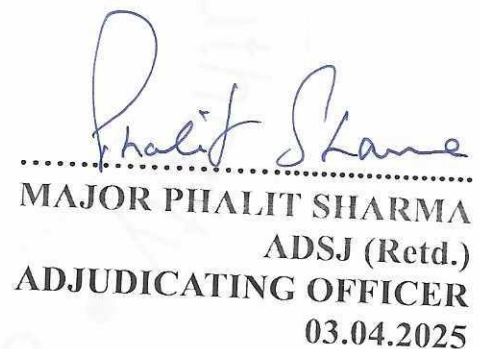 Phalit Sharma
MAJOR PHALIT SHARMA
ADSJ (Retd.)
ADJUDICATING OFFICER
03.04.2025